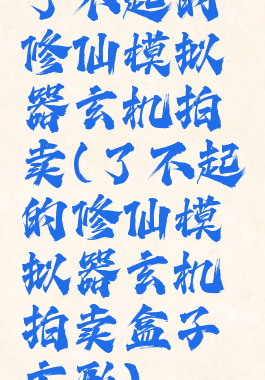 了不起的
修仙模拟
器玄机拍
卖(了不起
的修仙模
拟器玄机
拍卖盒子